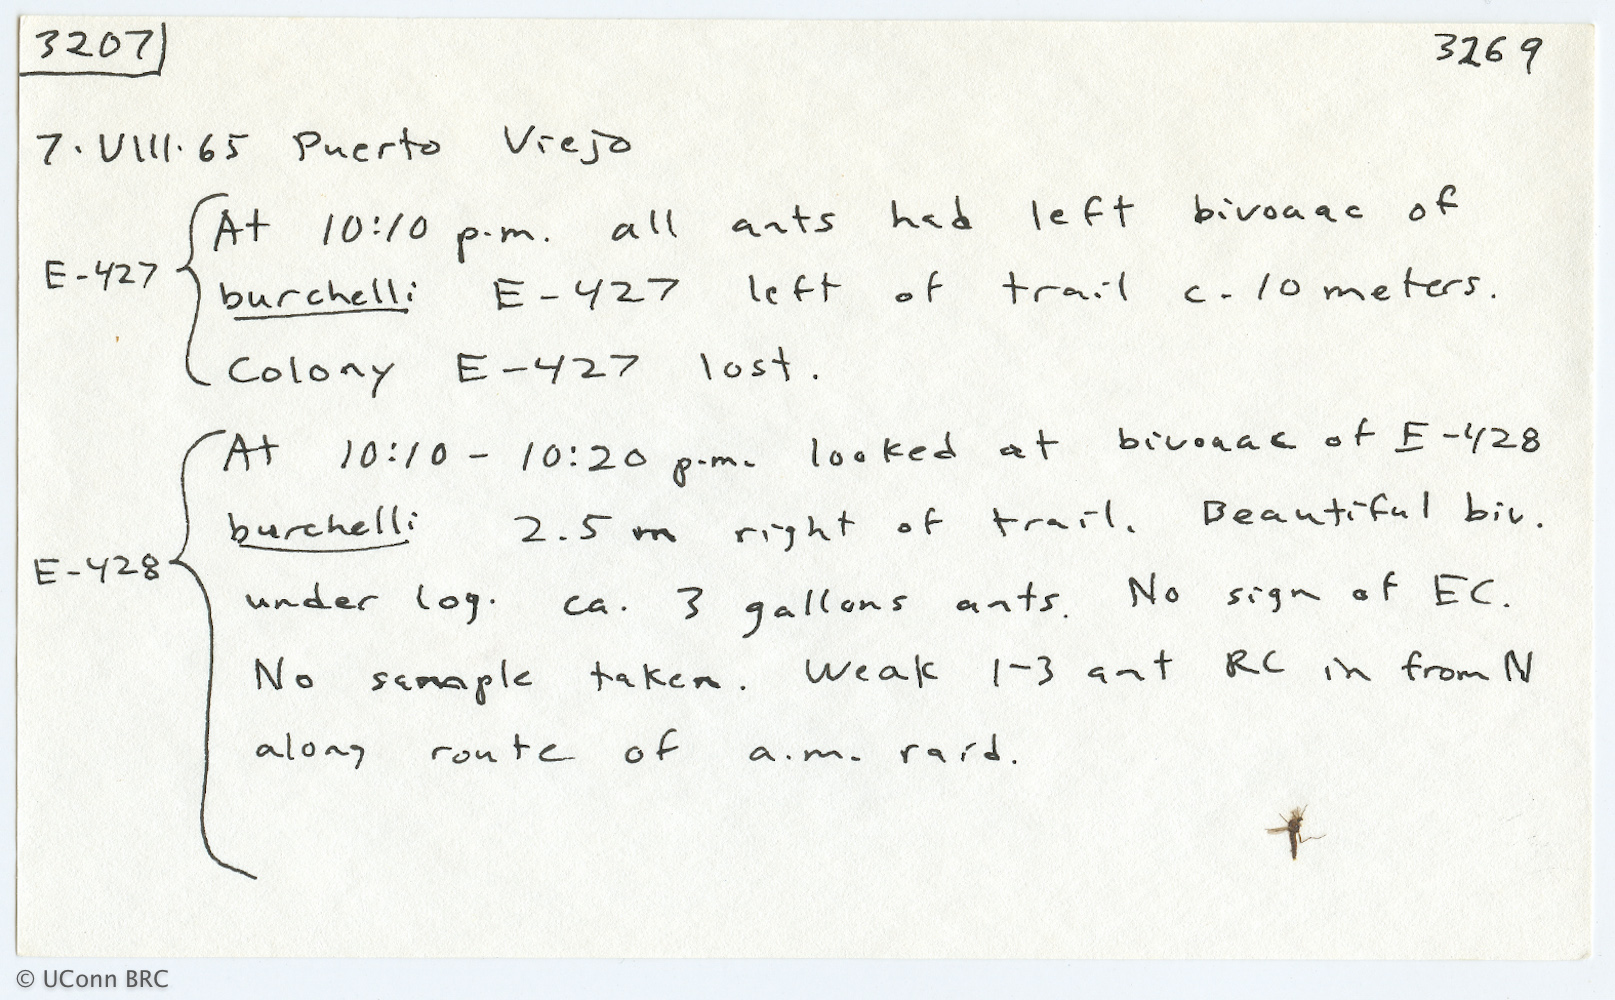 3207 3269
7·VIII·65 Puerto Viejo
At 10:10 p.m. all ants had left bivouac of
E-427 burchelli E-427 left of trail c. 10 meters.
Colony E-427 lost.
At 10:10 - 10:20 p.m. looked at bivouac of E-428
burchelli 2.5 m right of trail. Beautiful biv.
E-428 under log. ca. 3 gallons ants. No sign of EC.
No sample taken. Weak 1-3 ant RC in from N
along route of a.m. raid.
© UConn BRC